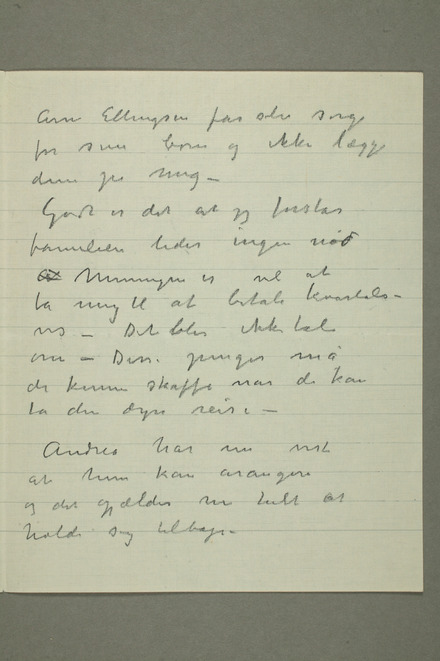 Arne Ellingsen får selv sørge
for sine børn og ikke lægge
dem på mig –
Godt er det at jeg forstår
familien lider ingen nød
Meningen er vel at
ta mig til at betale kvartals-
vis – Det blir ikke tale
om – Disse penger må
de kunne skaffe når de kan
ta den dyre reise –
Andrea har nu vist
at hun kan arangere
og det gjælder nu helt at
holde sig tilbage –